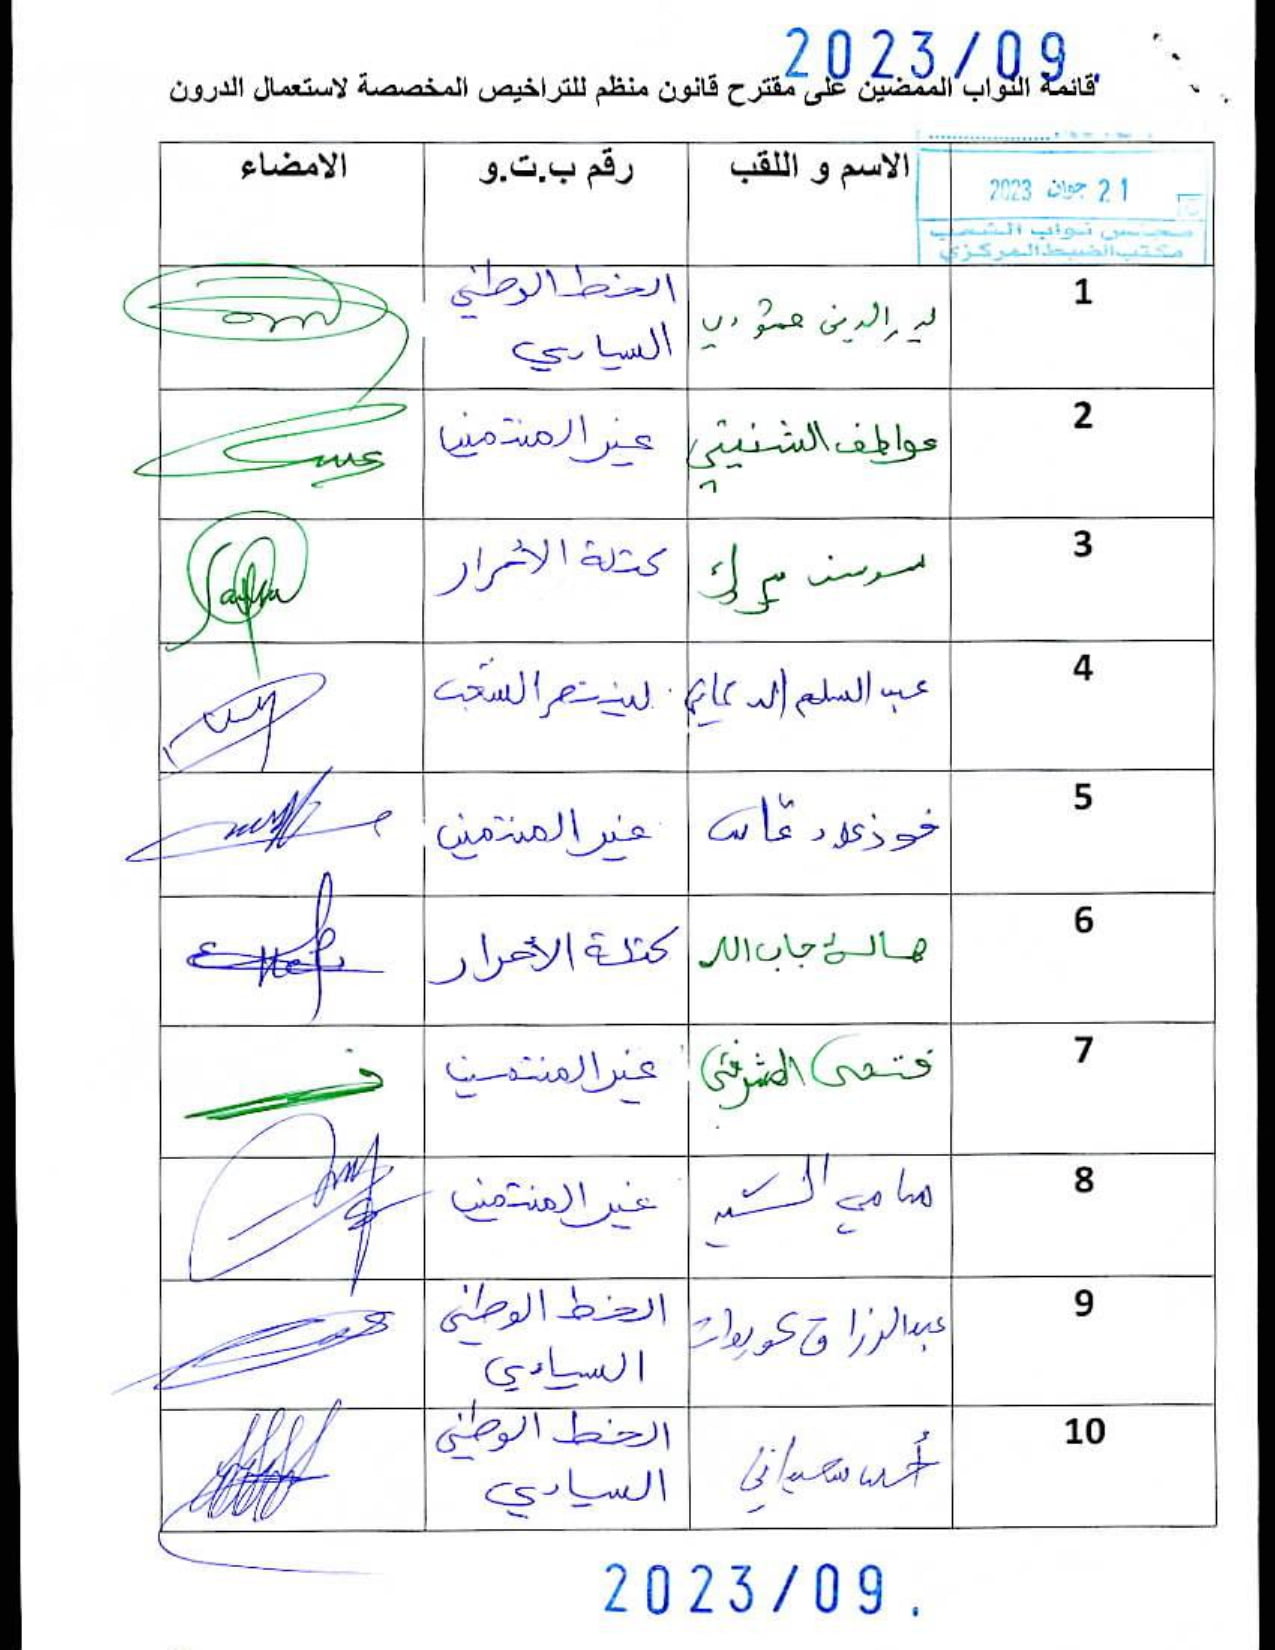 2023/09.
قائمة النواب الممضين على مقترح قانون منظم للتراخيص المخصصة لاستعمال الدرون
الاسم و اللقب رقم ب.ت.و الامضاء
21 جوان 2023
مجلس نواب الشعب
مكتب الضبط المركزي
1 بدر الدين الخط الوطني
السيادي
2 عواطف الشنيتي غير المنتمين
3 سوسن مبروك كتلة الأحرار
4 عبد السلام لينتصر الشعب
5 غير المنتمين
6 هالة جاب الله كتلة الأحرار
7 فتحي المشرقي غير المنتمين
8 سامي السيد غير المنتمين
9 عبد الرزاق عويدات الخط الوطني
السيادي
10 أحمد سعيداني الخط الوطني
السيادي
2023/09.